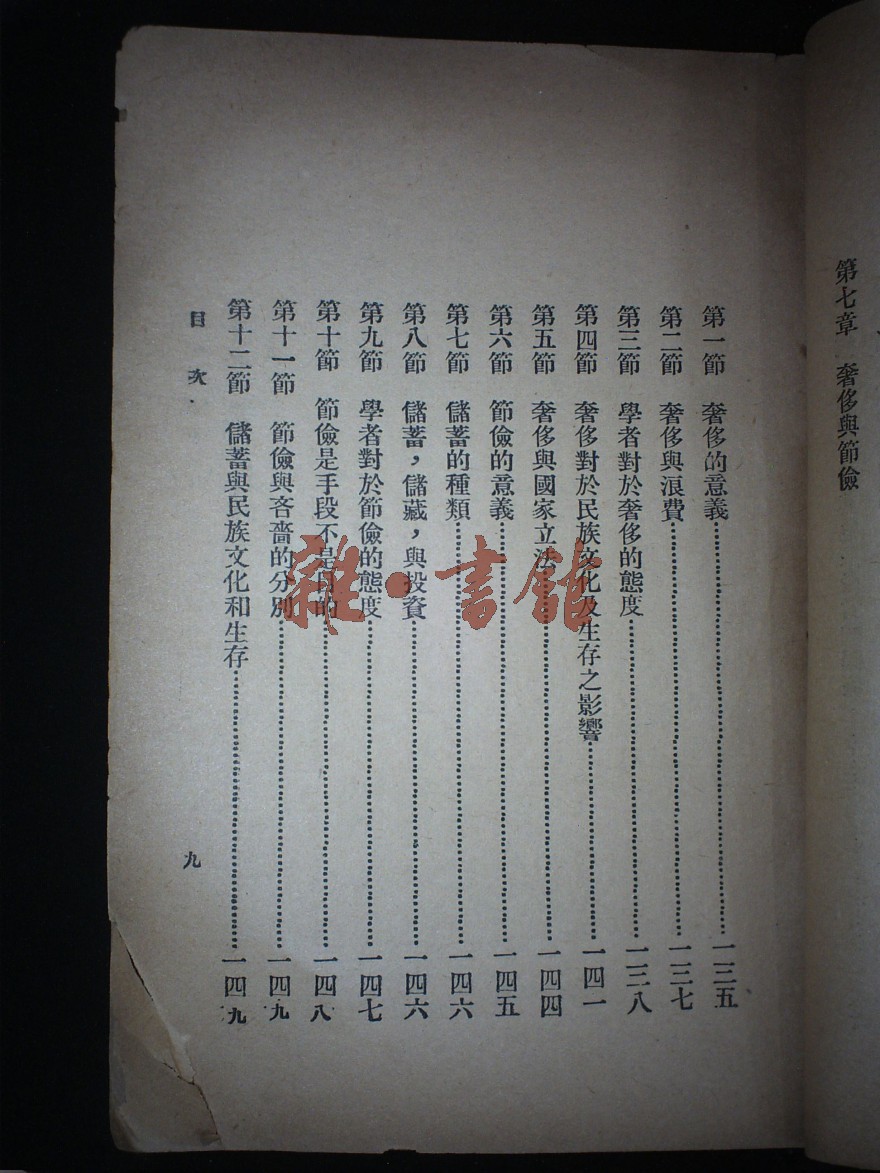 第七章　奢侈與節儉
第一節　奢侈的意義……一三五
第二節　奢侈與浪費……一三七
第三節　學者對於奢侈的態度……一三八
第四節　奢侈對於民族文化及生存之影響……一四一
第五節　奢侈與國家立法……一四四
第六節　節儉的意義……一四五
第七節　儲蓄的種類……一四六
第八節　儲蓄，儲藏，與投資……一四六
第九節　學者對於節儉的態度……一四七
第十節　節儉是手段不是目的……一四八
第十一節　節儉與吝嗇的分別……一四九
第十二節　儲蓄與民族文化和生存……一四九
目次
九
雜·書館